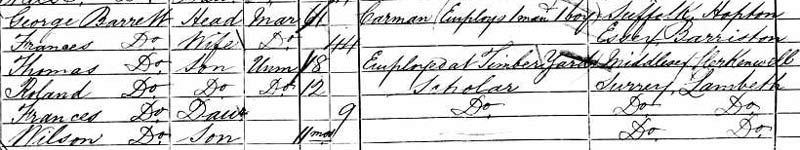 George Barrett Head Mar 61 Carman (Employs 1 man 1 boy) Suffolk Hopton
Frances Do. Wife Do. 44 Essex Barriston
Thomas Do. Son Unm 18 Employed at Timber Yard Middlesex Clerkenwell
Roland Do. Do. Do. 12 Scholar Surrey Lambeth
Frances Do. Daur 9 Do. Do. Do.
Wilson Do. Son 11 mos Do. Do.